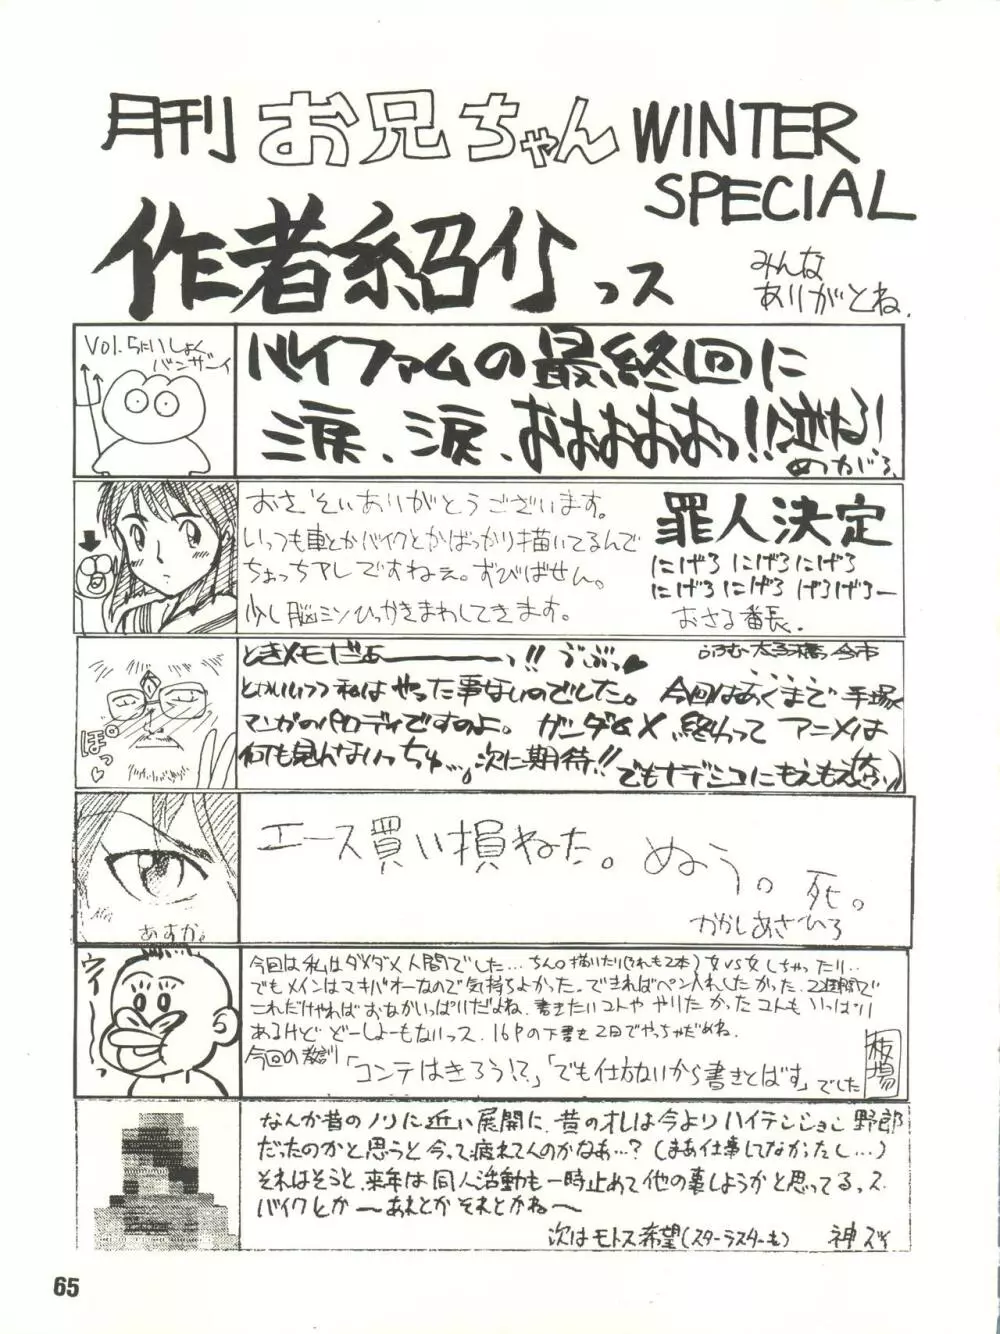 月刊 お兄ちゃん WINTER
SPECIAL
作者紹介っス
みんな
ありがとね.
Vol.5にいしょく
バンザーイ
バイファムの最終回に
涙、涙、おおおおおっ!!泣ける!
めがろ
おさそいありがとうございます。
いっつも車とかバイクとかばっかり描いてるんで
ちょっちアレですねぇ。ずびばせん。
少し脳ミソひっかきまわしてきます。
罪人決定
にげろ にげろ にげろ
にげろ にげろ げろげろー
おさる番長.
ぽっ♥
ときメモだぁーーーっ!! うぶっ♥
とかいいつつ私はやった事ないのでした。今回はあくまで手塚
マンガのパロディですのよ。ガンダムX、終わって アニメは
何も見んないっちゅ…。次に期待!! でもナデシコにもえもえ
あすか。
エース買い損ねた。ぬぅう。死。
かかしあさひろ
ウイーー
今回は私はダメダメ人間でした…ちん○描いたり(それも2本)女VS女しちゃったり…
でもメインはマキバオーなので気持ちよかった。できればペン入れしたかった。2週間で
これだけやればおなかいっぱいだよね、書きたいコトや やりたかったコトも いっぱい
あるけど どーしよーもないっス、16Pの下書を2日でやっちゃだめね。
今回の教訓「コンテはきろう!?」「でも仕方ないから書きとばす」でした 板場
なんか昔のノリに近い展開に、昔のオレは今よりハイテンション野郎
だったのかと思うと今って疲れてんのかなぁ…?(まぁ仕事してなかったし…)
それはそうと、来年は同人活動も一時止めて他の事しようかと思ってるっス
バイクとか〜あれとかそれとかね〜
次はモトス希望(スターラスターも) 神ズイ
65